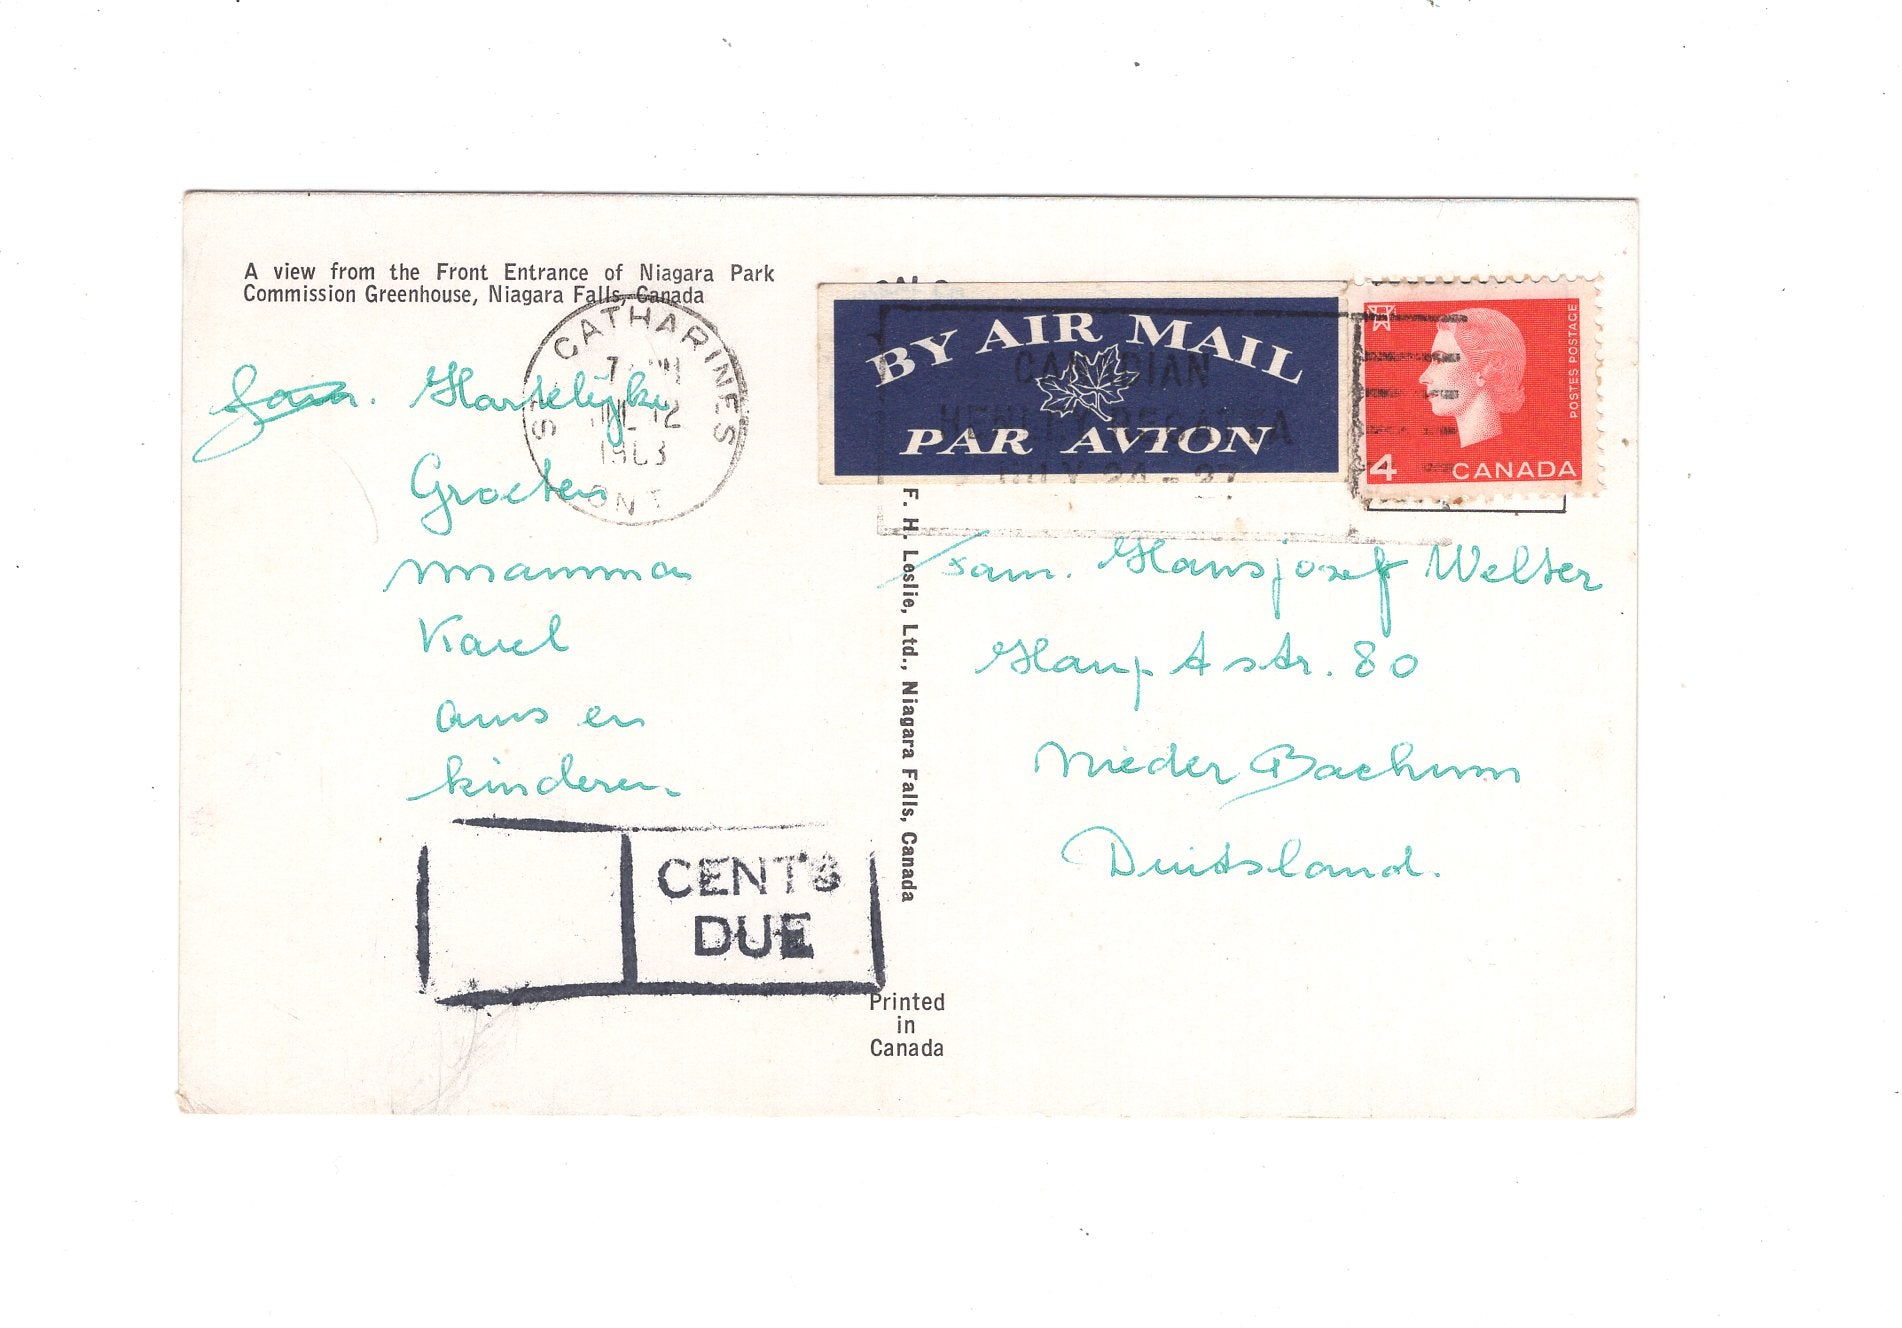 A view from the Front Entrance of Niagara Park
Commission Greenhouse, Niagara Falls, Canada
ST. CATHARINES
PM
JUL 12
1963
ONT
BY AIR MAIL
PAR AVION
CANADIAN
HENLEY REGATTA
JULY 24-27
POSTES POSTAGE
4 CANADA
Hartelijke
Groeten
mamma
Karel
ans en
kinderen.
F. H. Leslie, Ltd., Niagara Falls, Canada
fam. Hansjosef Welter
Hauptstr. 80
Nieder Bachem
Duitsland.
CENTS
DUE
Printed
in
Canada